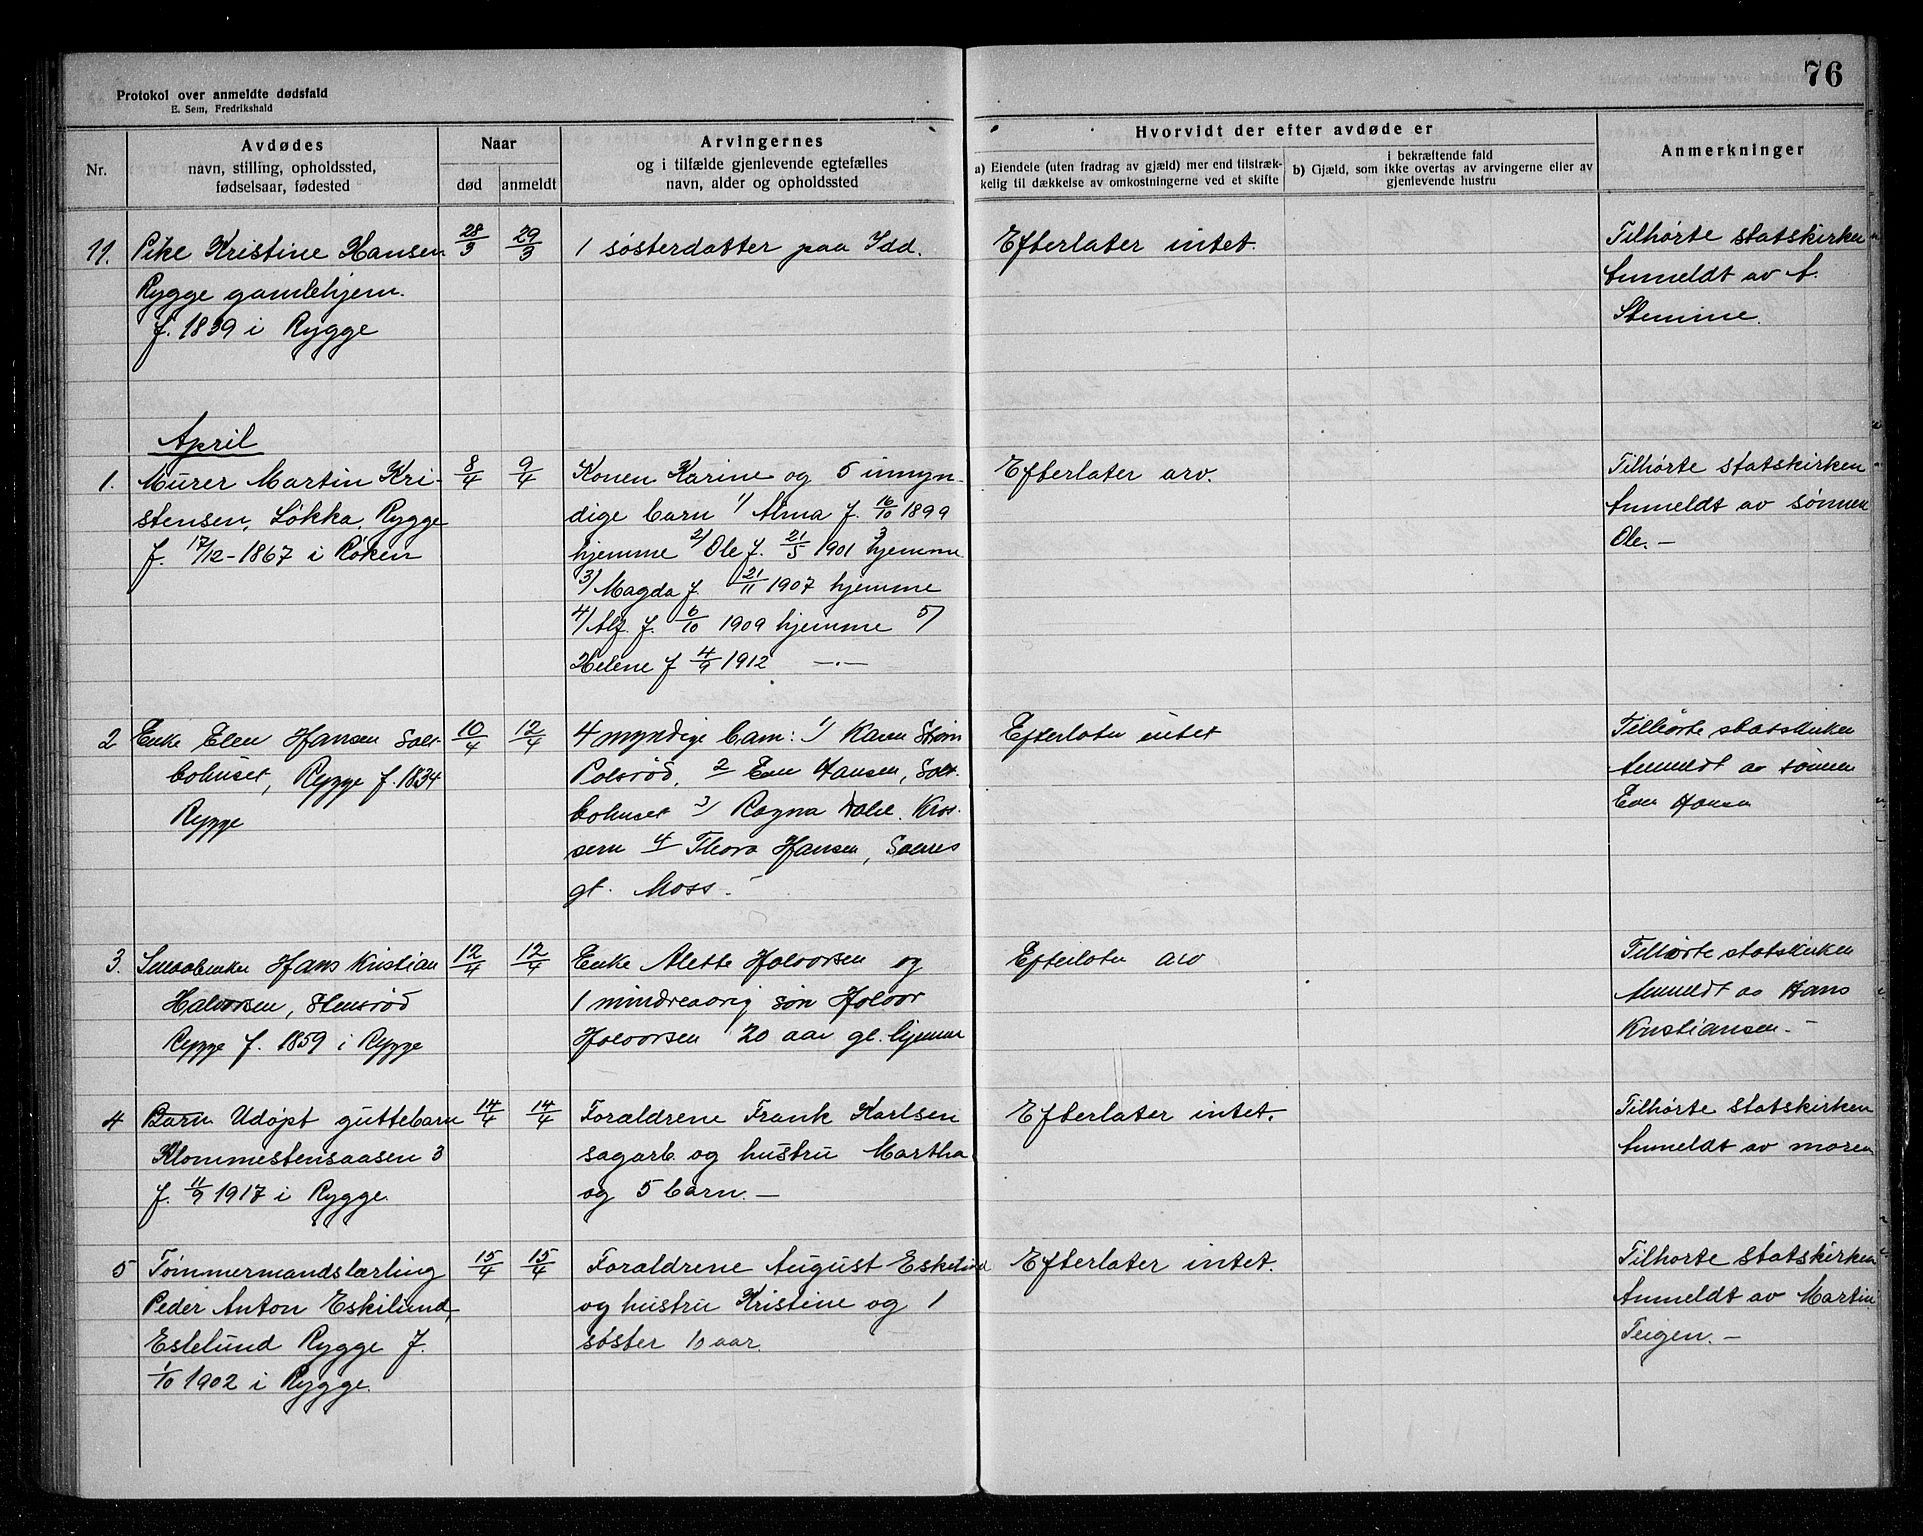 76
Protokol over anmeldte dødsfald
E. Sem, Fredrikshald
Nr.
Avdødes
navn, stilling, opholdssted,
fødselsaar, fødested
Naar
død
anmeldt
Arvingernes
og i tilfælde gjenlevende egtefælles
navn, alder og opholdssted
Hvorvidt der efter avdøde er
a) Eiendele (uten fradrag av gjæld) mer end tilstræk-
kelig til dækkelse av omkostningerne ved et skifte
i bekræftende fald
b) Gjæld, som ikke overtas av arvingerne eller av
gjenlevende hustru
Anmerkninger
11.
Pike Kristine Hansen
Rygge gamlehjem.
f. 1839 i Rygge
28/3
29/3
1 søsterdatter paa Idd.
Efterlater intet.
Tilhørte statskirken
Anmeldt av A.
Stemme.
April
1.
Murer Martin Kri-
stensen, Løkka, Rygge
f. 17/12-1867 i Røken
8/4
9/4
Konen Karine og 5 umyn-
dige barn 1/ Alma f. 16/10 1899
hjemme 2/ Ole f. 21/5 1901 hjemme
3/ Magda f. 21/11 1907 hjemme
4/ Alf. f. 6/10 1909 hjemme 5/
Helene f 4/9 1912 -.-
Efterlater arv.
Tilhørte statskirken
Anmeldt av sønnen
Ole. -
2
Enke Elen Hansen Salt-
bohuset, Rygge f. 1834
Rygge
10/4
12/4
4 myndige barn: 1/ Karen Strøm
Polsrød, 2 Even Hansen, Salt-
bohuset 3/ Ragna
4 Thora Hansen,
gt. Moss. -
Efterlater intet
Tilhørte statskirken
Anmeldt av sønnen
Even Hansen
3.
Smaabruker Hans Kristian
Halvorsen, Stensrød
Rygge f. 1859 i Rygge
12/4
12/4
Enke Alette Halvorsen og
1 mindreaarig søn Halvor
Halvorsen 20 aar gl. hjemme
Efterlater arv
Tilhørte statskirken
Anmeldt av Hans
Kristiansen. -
4
Barn Udøpt guttebarn
Klommestensaasen 3
f. 11/9 1917 i Rygge.
14/4
14/4
Forældrene Frank Karlsen
sagarb. og hustru Martha
og 5 barn. -
Efterlater intet.
Tilhørte statskirken
Anmeldt av moren
5
Tømmermandslærling
Peder Anton Eskilund,
Eskelund Rygge f.
1/10 1902 i Rygge.
15/4
15/4
Forældrene August Eskelund
og hustru Kristine og 1
søster 10 aar.
Efterlater intet.
Tilhørte statskirken
Anmeldt av Martin
Teigen. -